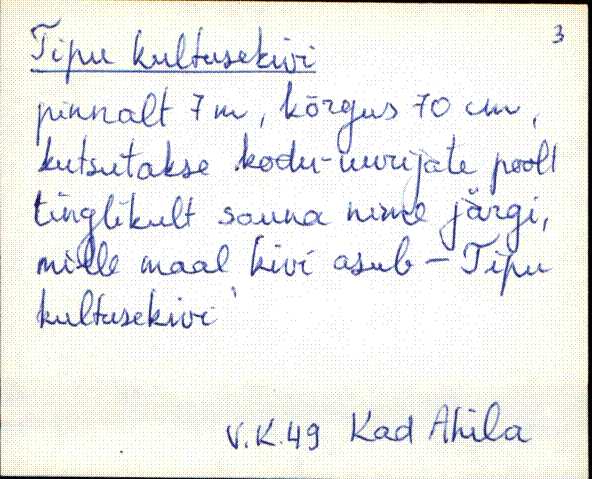 3
Tipu kultusekivi
pinnalt 7 m, kõrgus 70 cm,
kutsutakse kodu-uurijate poolt
tinglikult sauna nime järgi,
mille maal kivi asub – Tipu
kultusekivi
V.K.49 Kad Ahila